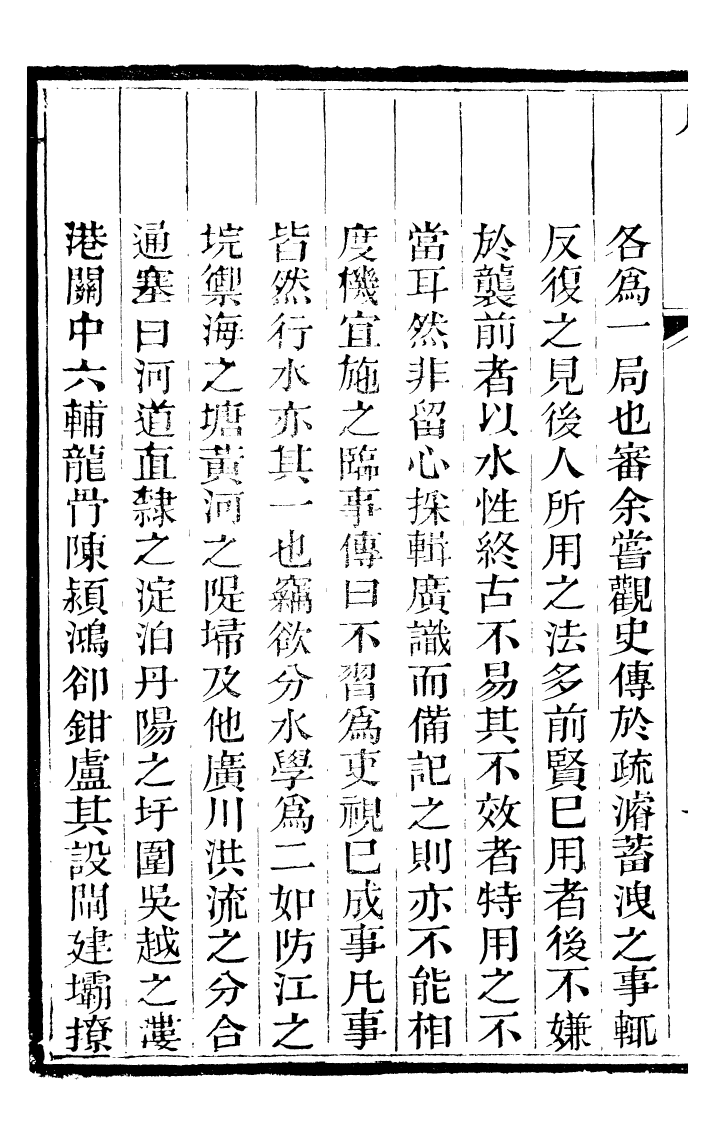 各爲一局也審余嘗觀史傳於疏濬蓄洩之事輒
反復之見後人所用之法多前賢已用者後不嫌
於襲前者以水性終古不易其不效者特用之不
當耳然非留心採輯廣識而備記之則亦不能相
度機宜施之臨事傳曰不習爲吏視已成事凡事
皆然行水亦其一也竊欲分水學爲二如防江之
垸禦海之塘黃河之隄埽及他廣川洪流之分合
通塞曰河道直隸之淀泊丹陽之圩圍吳越之漊
港關中六輔龍骨陳潁鴻卻鉗盧其設閘建壩撩